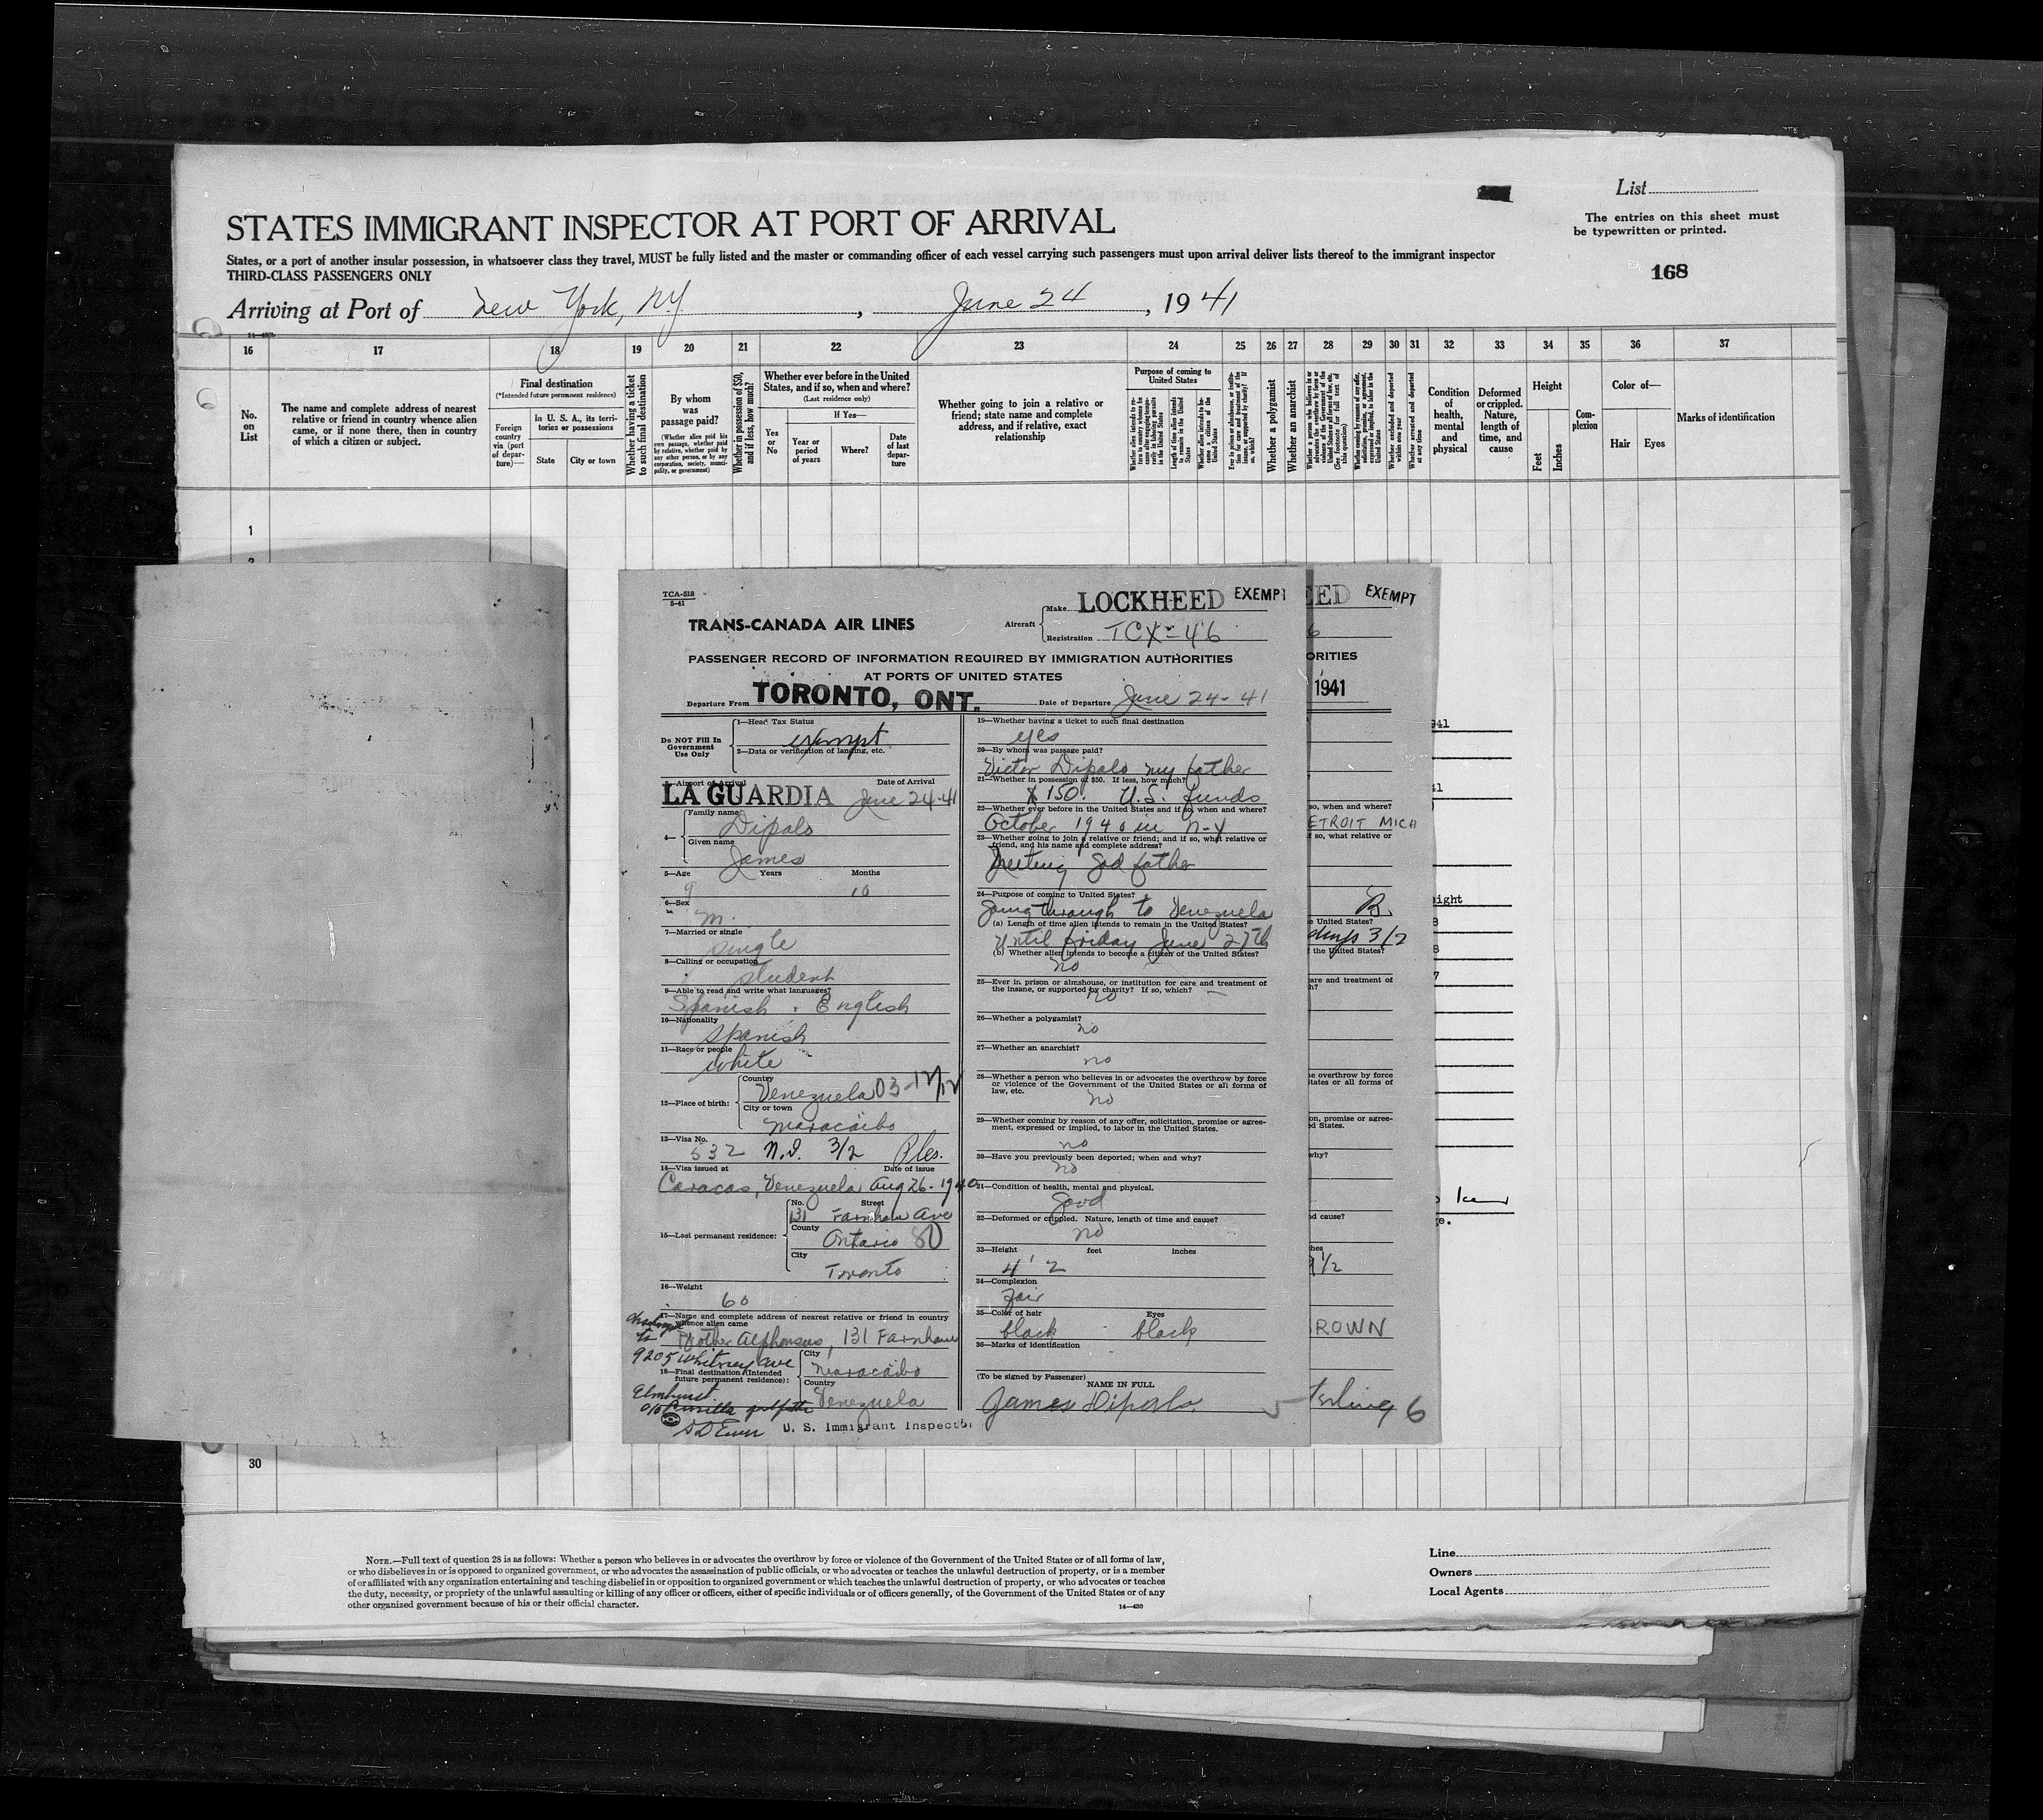 List
STATES IMMIGRANT INSPECTOR AT PORT OF ARRIVAL
The entries on this sheet must
be typewritten or printed.
States, or a port of another insular possession, in whatsoever class they travel, MUST be fully listed and the master or commanding officer of each vessel carrying such passengers must upon arrival deliver lists thereof to the immigrant inspector
THIRD-CLASS PASSENGERS ONLY
168
Arriving at Port of New York, N.Y., June 24, 1941
16 17 18 19 20 21 22 23 24 25 26 27 28 29 30 31 32 33 34 35 36 37
No. on List
The name and complete address of nearest relative or friend in country whence alien came, or if none there, then in country of which a citizen or subject.
Final destination
(*Intended future permanent residence)
Foreign country via (port of departure)—
In U. S. A., its territories or possessions
State
City or town
Whether having a ticket to such final destination
By whom was passage paid?
(Whether alien paid his own passage, whether paid by relative, whether paid by any other person, or by any corporation, society, municipality, or government)
Whether in possession of $50, and if less, how much?
Whether ever before in the United States, and if so, when and where?
(Last residence only)
Yes or No
If Yes—
Year or period of years
Where?
Date of last departure
Whether going to join a relative or friend; state name and complete address, and if relative, exact relationship
Purpose of coming to United States
Whether a polygamist
Whether an anarchist
Condition of health, mental and physical
Deformed or crippled. Nature, length of time, and cause
Height
Feet
Inches
Complexion
Color of—
Hair
Eyes
Marks of identification
1
TCA-518
5-41
TRANS-CANADA AIR LINES
Aircraft
Make LOCKHEED EXEMPT
Registration TCX-46
PASSENGER RECORD OF INFORMATION REQUIRED BY IMMIGRATION AUTHORITIES
AT PORTS OF UNITED STATES
Departure From TORONTO, ONT. Date of Departure June 24-41
Do NOT Fill In
Government
Use Only
1—Head Tax Status
exempt
2—Data or verification of landing, etc.
3—Airport of Arrival Date of Arrival
LA GUARDIA June 24-41
4— Family name
Dipalo
Given name
James
5—Age Years Months
9 10
6—Sex
m.
7—Married or single
single
8—Calling or occupation
student
9—Able to read and write what languages?
Spanish + English
10—Nationality
Spanish
11—Race or people
white
12—Place of birth:
Country
Venezuela 03-
City or town
Maracaibo
13—Visa No.
532 N.I. 3/2
14—Visa issued at Date of issue
Caracas, Venezuela Aug 26-1940
15—Last permanent residence:
No. Street
131 Farnham Ave
County
Ontario 80
City
Toronto
16—Weight
60
17—Name and complete address of nearest relative or friend in country
whence alien came
Mother Alphonsus, 131 Farnham
9205 Whitney ave
18—Final destination (Intended
future permanent residence):
City
Maracaibo
Country
Venezuela
Elmhurst
U. S. Immigrant Inspector
19—Whether having a ticket to such final destination
yes
20—By whom was passage paid?
Victor Dipalo my father
21—Whether in possession of $50. If less, how much?
$150. U.S. funds
22—Whether ever before in the United States and if so, when and where?
October 1940 in N-Y
23—Whether going to join a relative or friend; and if so, what relative or
friend, and his name and complete address?
Meeting God father
24—Purpose of coming to United States?
Going through to Venezuela
(a) Length of time alien intends to remain in the United States?
Until Friday June 27th
(b) Whether alien intends to become a citizen of the United States?
no
25—Ever in prison or almshouse, or institution for care and treatment of
the insane, or supported by charity? If so, which?
no
26—Whether a polygamist?
no
27—Whether an anarchist?
no
28—Whether a person who believes in or advocates the overthrow by force
or violence of the Government of the United States or all forms of
law, etc.
no
29—Whether coming by reason of any offer, solicitation, promise or agree-
ment, expressed or implied, to labor in the United States.
no
30—Have you previously been deported; when and why?
no
31—Condition of health, mental and physical.
Good
32—Deformed or crippled. Nature, length of time and cause?
no
33—Height feet inches
4' 2
34—Complexion
Fair
35—Color of hair Eyes
black black
36—Marks of identification
(To be signed by Passenger)
NAME IN FULL
James Dipalo
EED EXEMPT
ORITIES
1941
so, when and where?
ETROIT MICH
if so, what relative or
e United States?
3/2
the United States?
care and treatment of
he overthrow by force
States or all forms of
on, promise or agree-
ed States.
why?
nd cause?
9 1/2
ROWN
6
30
NOTE.—Full text of question 28 is as follows: Whether a person who believes in or advocates the overthrow by force or violence of the Government of the United States or of all forms of law,
or who disbelieves in or is opposed to organized government, or who advocates the assassination of public officials, or who advocates or teaches the unlawful destruction of property, or is a member
of or affiliated with any organization entertaining and teaching disbelief in or opposition to organized government or which teaches the unlawful destruction of property, or who advocates or teaches
the duty, necessity, or propriety of the unlawful assaulting or killing of any officer or officers, either of specific individuals or of officers generally, of the Government of the United States or of any
other organized government because of his or their official character.
14—430
Line
Owners
Local Agents